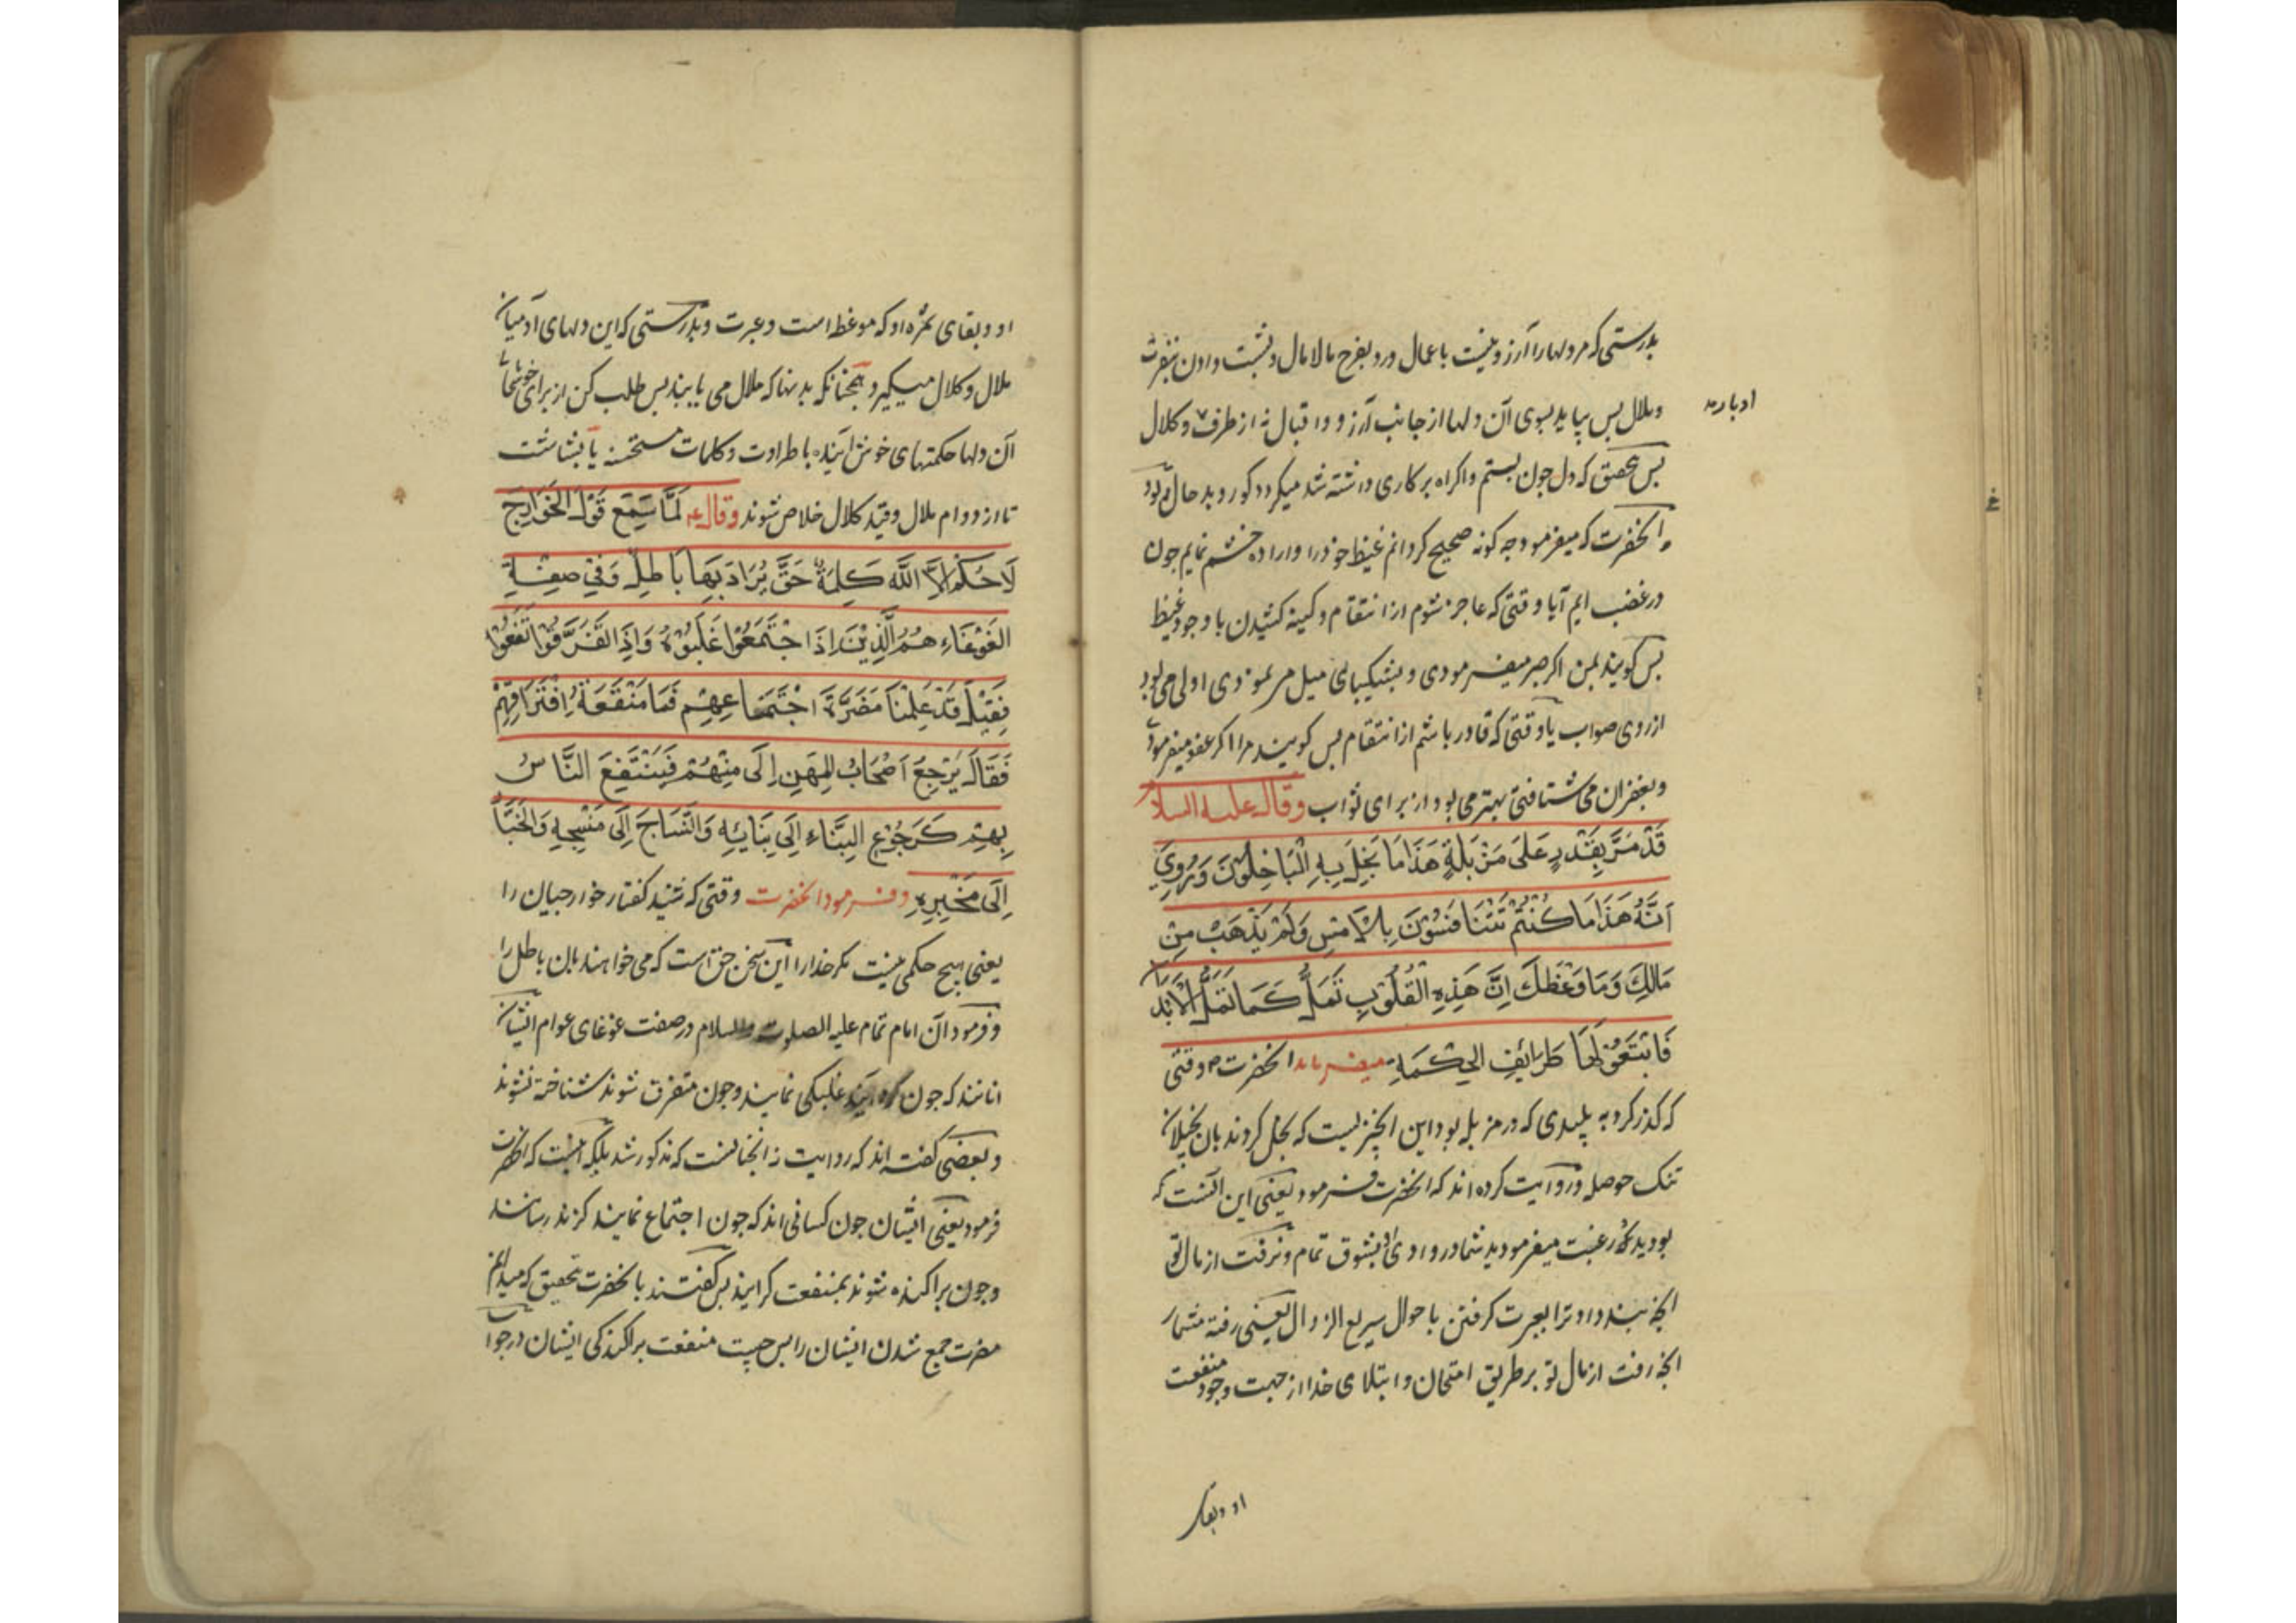 بدرستی که مر دلها را آرزوئیست باعمال و رو بفرح مالامال و پشت دادن بنفرت
و ملال پس بیاید بسوی آن دلها از جانب آرزو و اقبال نه از طرف و کلال
ادبار
پس بتحقیق که دل چون بستم و اکراه بر کاری داشته شد میکردد کور و بد حال
و آنحضرت که میفرمود چه کونه صحیح کردانم غیظ خود را و اراده خشم نمایم چون
در غضب ایم آیا وقتی که عاجز شوم از انتقام و کینه کشیدن با وجود غیظ
پس کویند بمن اکر صبر میفرمودی و بشکیبای میل مر نمودی اولی می بود
از روی صواب یا وقتی که قادر باشم از انتقام پس کویند مرا اکر عفو میفرمودی
و بغفران می شتافتی بهتر می بود از برای ثواب وقال علیه السلام
قَدْ مَرَّ بِقَذَرٍ عَلَى مَزْبَلَةٍ هَذَا مَا بَخِلَ بِهِ الْبَاخِلُوْنَ وَرُوِيَ
اَنَّهُ هَذَا مَا كُنْتُمْ تَتَنَافَسُوْنَ بِالْاَمْسِ وَلَمْ يَذْهَبْ مِنْ
مَالِكَ وَمَا وَعَظَكَ اِنَّ هَذِهِ الْقُلُوْبِ تَمَلُّ كَمَا تَمَلُّ الْاَبْدَانُ
فَابْتَغُوْا لَهَا طَرَائِفِ الْحِكْمَةِ میفرماید آنحضرت ص وقتی
که کذر کرد به پلیدی که در مزبله بود این انچیزیست که بخل کردند بان بخیلان
تنک حوصله و روایت کرده اند که انحضرت فرمود یعنی این انست که
بودید که رغبت میفرمودید شما در و از وی بشوق تمام و نرفت از مال تو
انچه پند داد ترا بعبرت کرفتن باحوال سریع الزوال یعنی رفته مشمار
انچه رفت از مال تو بر طریق امتحان و ابتلای خدا از جهت وجود منفعت
او و بقای
او و بقای ثمره او که موعظه است و عبرت و بدرستی که این دلهای آدمیان
ملال و کلال میکیرد همچنانکه بدنها که ملال می یابند پس طلب کن از برای
آن دلها حکمتهای خوش آینده با طراوت و کلمات مستحسنه با بشاشت
تا از دوام ملال و قید کلال خلاص شوند وقال ع لَمَّا سَمِعَ قَوْلَ الْخَوَارِجَ
لَا حُكْمَ اِلَّا اللَّه كَلِمَةُ حَقٍّ يُرَادُ بِهَا بَاطِلٌ وَفِي صِفَةِ
الغَوْغَاءِ هُمُ الَّذِيْنَ اِذَا اجْتَمَعُوْا غَلَبُوْا وَاِذَا تَفَرَّقُوْا نَفَعُوْا
فَقِيْلَ قَدْ عَلِمْنَا مَضَرَّةَ اجْتِمَاعِهِمْ فَمَا مَنْفَعَةُ افْتِرَاقِهِمْ
فَقَالَ يَرْجِعُ اَصْحَابُ الْمِهَنِ اِلَى مِهَنِهِمْ فَيَنْتَفِعَ النَّاسُ
بِهِمْ كَرَجُوْعِ الْبَنَّاءِ اِلَى بِنَائِهِ وَالنَّسَاجَ اِلَى مَنْسَجِهِ وَالْخَبَّازِ
اِلَى مَخْبِزِهِ و فرمود انحضرت وقتی که شنید کفتار خوارجیان را
یعنی هیچ حکمی نیست مکر خدا را این سخن حق است که می خواهند بان باطل را
و فرمود آن امام تمام علیه الصلوت والسلام در صفت غوغای عوام ایشان
انانند که چون کرد آیند غلبکی نمایند و چون متفرق شوند شناخته نشوند
و بعضی کفته اند که روایت نه انچنانست که مذکور شد بلکه انست که انحضرت
فرمود یعنی ایشان چون کسانی اند که چون اجتماع نمایند کزند رسانند
و چون پراکنده شوند بمنفعت کرایند پس کفتند بانحضرت بتحقیق که میدانم
مضرت جمع شدن ایشان را پس چیست منفعت پراکندکی ایشان در جواب